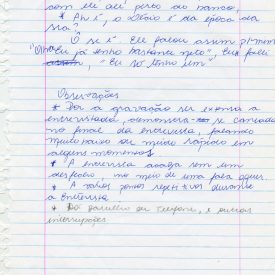 com ele ali perto do banco,
* Ah é, o Otávio é da época da
sra?
O sr é. Ele falou assim p/ mim
"Eu já tenho bastante neto". Eu falei
"Eu só tenho um"
Observações
* Por a gravação ser externa a
entrevistada, demonstra se cansada
no final da entrevista, falando
muito baixo ou muito rápido em
alguns momentos.
* A entrevista acaba sem um
desfecho, no meio de uma fala aguer.
* A vários termos repetitivos durante
a Entrevista
* Do barulho do Telefone, e outras
interrupções